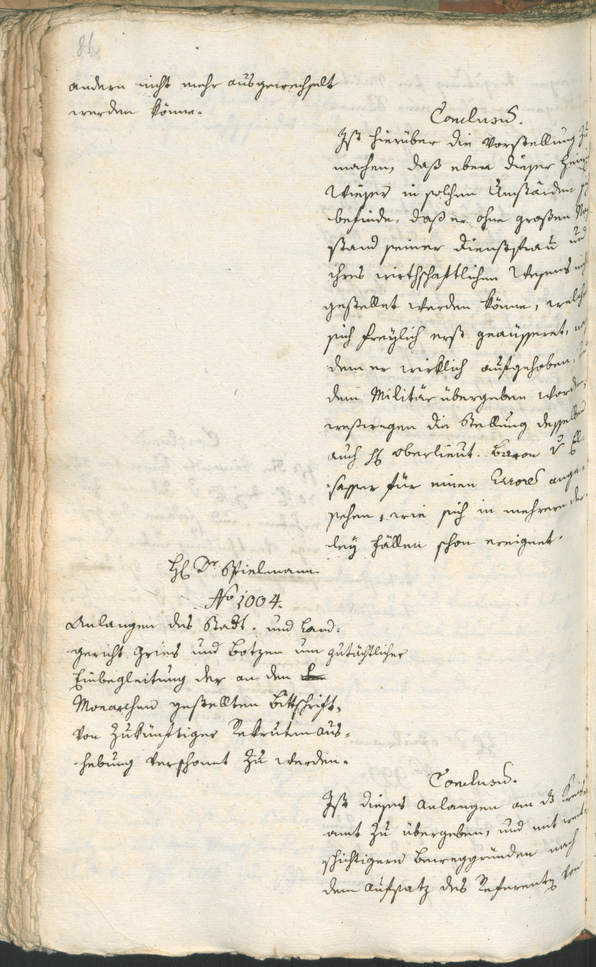 81
andern nicht mehr ausgewechselt
werden könne.
Conclusum.
Ist hierüber die Vorstellung zu
machen, daß eben dieser
Wieser in solchen Umständen
befinde, daß er ohne großen
stand seiner Dienstfrau und
ihres wirthschaftlichen Wesens
gestellet werden könne, welche
sich freylich erst geäusseret,
dem er wirklich aufgehoben,
dem Militär übergeben worden,
weswegen die Stellung desselben
auch H Oberlieut. Baron v
für einen Errores ange-
sehen, wie sich in mehrern der-
ley Fällen schon ereignet.
H Dr. Spielmann
No 1004.
Anlangen des Stadt- und Land-
gericht Gries und Botzen um gutächtlicher
Einbegleitung der an den
Monarchen gestellten Bittschrift,
von zukünftiger Rekrutenaus-
hebung verschont zu werden.
Conclusum.
Ist dieses Anlangen an das Kreis-
amt zu übergeben, und mit
schichtigern Beweggründen nach
dem Aufsatz des Referenten